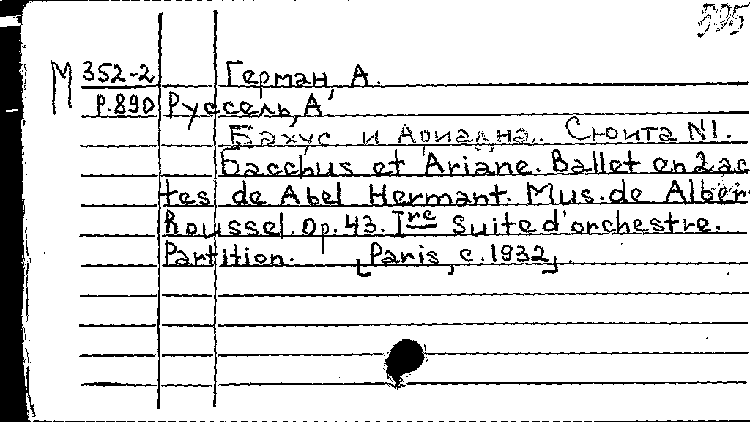 395
М 352-2 Герман, А.
Р.890 Руссель, А.
Бахус и Ариадна. Сюита N1.
Bacchus et Ariane. Ballet en 2 ac
tes de Abel Hermant. Mus. de Alber
Roussel. Op. 43. Ire Suite d'orchestre.
Partition. [Paris, c. 1932]